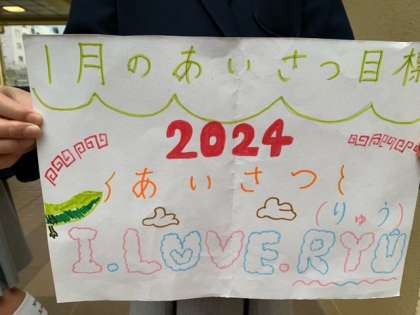 1月のあいさつ目標
2024
~あいさつ~
(りゅう)
I.LOVE.RYŪ